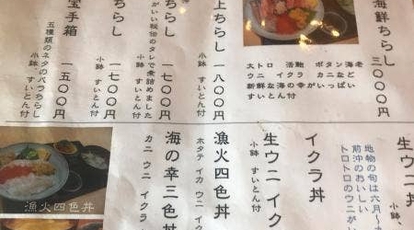 海鮮ちらし
三〇〇〇円
大トロ 活鮑 ボタン海老
ウニ イクラ カニなど
新鮮な海の幸がいっぱい
すいとん付
上ちらし
一八〇〇円
小鉢 すいとん付
ちらし
いい秘伝のタレで煮詰めました
一七〇〇円
小鉢 すいとん付
ちらし
一七〇〇円
小鉢 すいとん付
宝手箱
五種類のネタのバラちらし
一五〇〇円
小鉢 すいとん付
生ウニ丼
地物の旬は六月~
前沖のおいしい
トロトロのウニが
小鉢、
イクラ丼
生ウニイク
小鉢 すいとん付
漁火四色丼
ホタテ イカ ウニ イ
海の幸三色丼
カニ ウニ イクラ
漁火四色丼